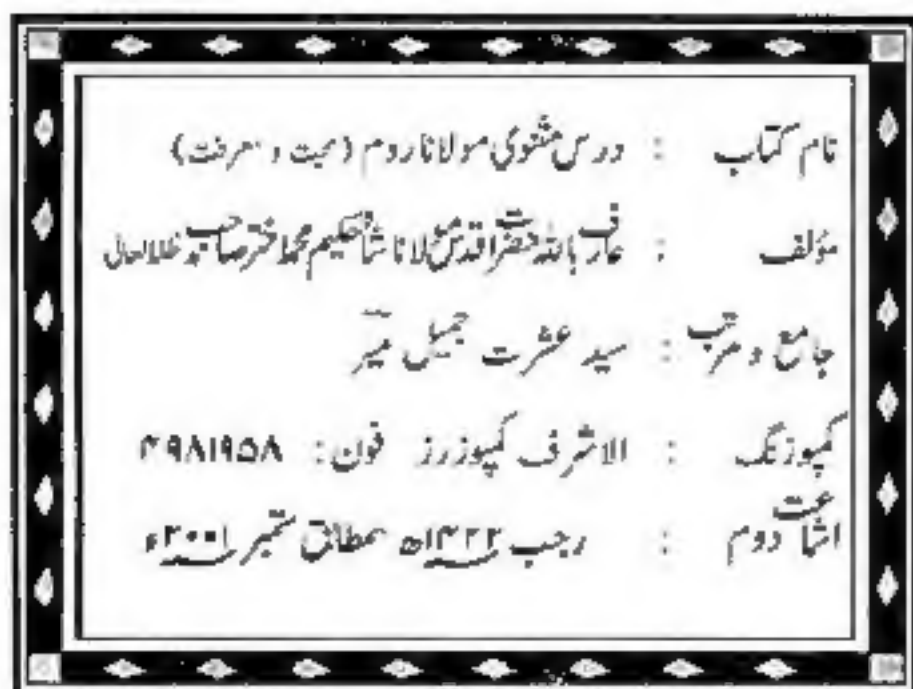 نام کتاب : درس مثنوی مولانا روم (محبت و معرفت)
مؤلف : عارف باللہ حضرت اقدس مولانا شاہ حکیم محمد اختر صاحب مدظلہ العالی
جامع و مرتب : سید عشرت جمیل میر
کمپوزنگ : الاشرف کمپوزرز فون: ۴۹۸۱۹۵۸
اشاعت دوم : رجب ۱۴۲۲ھ بمطابق ستمبر ۲۰۰۱ء